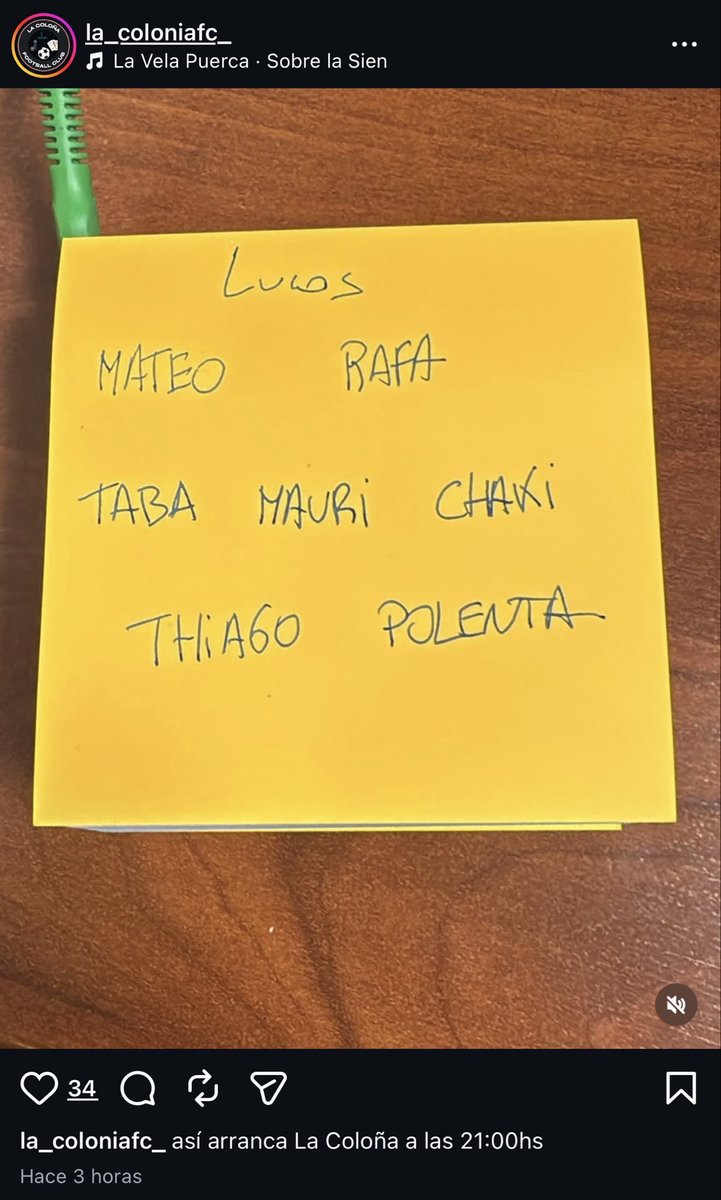 LA COLOÑA
FOOTBALL CLUB
la_coloniafc_
La Vela Puerca · Sobre la Sien
Lucas
MATEO RAFA
TABA MAURI CHAKI
THiAGO POLENTA
34
la_coloniafc_ así arranca La Coloña a las 21:00hs
Hace 3 horas